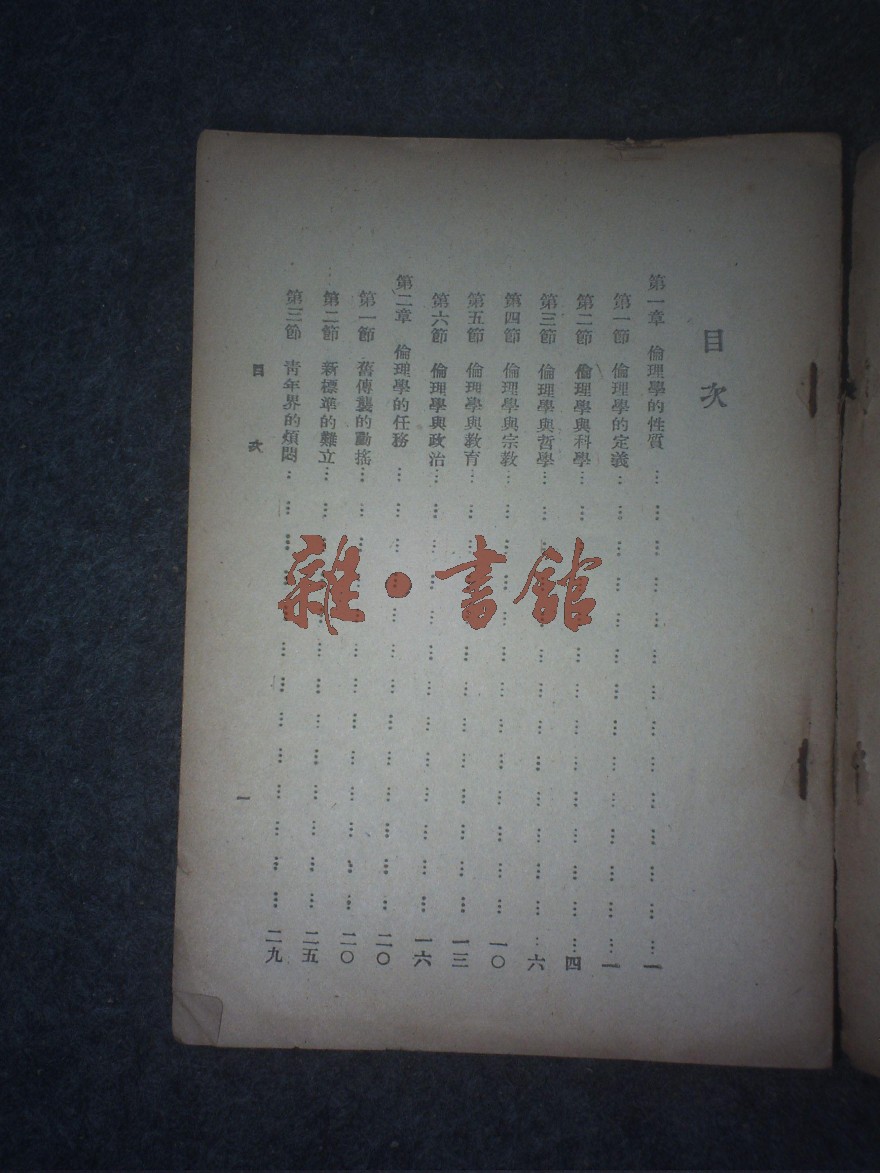 目次
第一章 倫理學的性質 … … … … … … … … … … … … … … 一
第一節 倫理學的定義 … … … … … … … … … … … … … … 一
第二節 倫理學與科學 … … … … … … … … … … … … … … 四
第三節 倫理學與哲學 … … … … … … … … … … … … … … 六
第四節 倫理學與宗教 … … … … … … … … … … … … … 一〇
第五節 倫理學與教育 … … … … … … … … … … … … … 一三
第六節 倫理學與政治 … … … … … … … … … … … … … 一六
第二章 倫理學的任務 … … … … … … … … … … … … … 二〇
第一節 舊傳襲的動搖 … … … … … … … … … … … … … 二〇
第二節 新標準的難立 … … … … … … … … … … … … … 二五
第三節 靑年界的煩悶 … … … … … … … … … … … … … 二九
目次
一
雜·書館